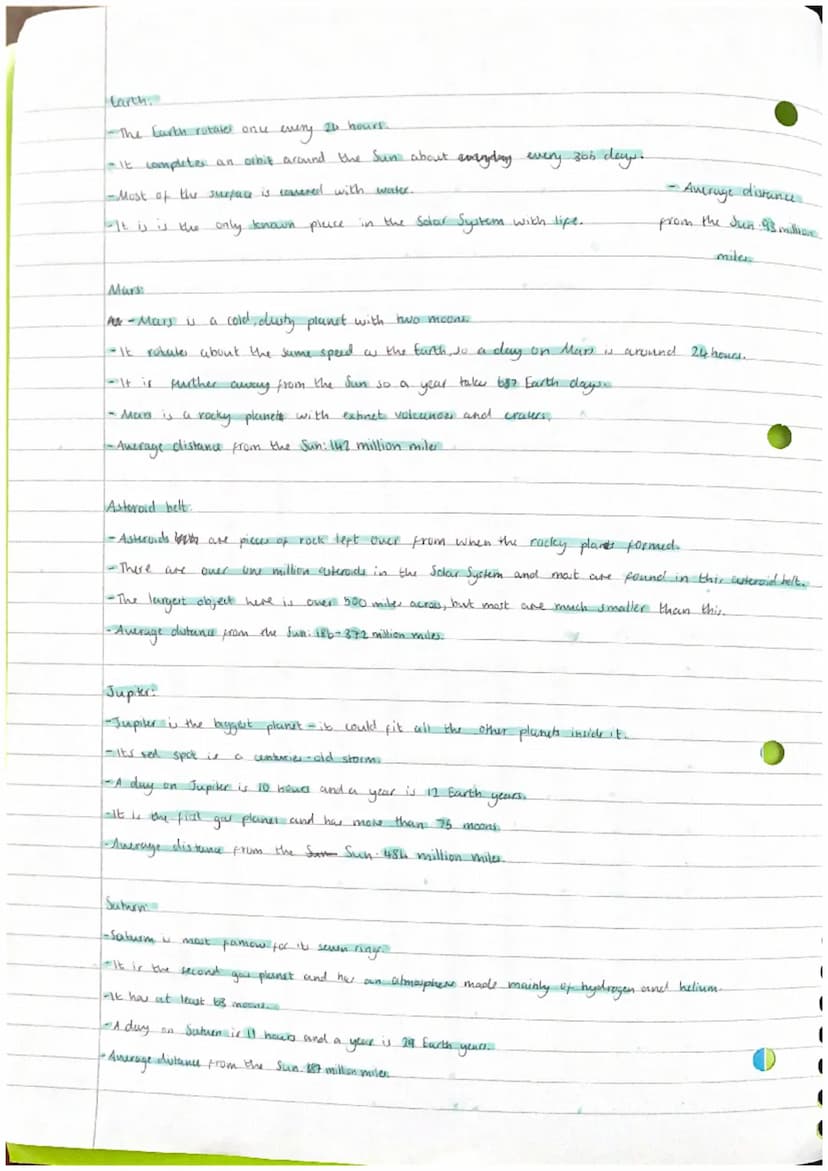 Earth:
- The Earth rotates once every 24 hours.
- It completes an orbit around the Sun about everyday every 365 days.
- Most of the surface is covered with water.
- It is is the only known place in the Solar System with life.
- Average distance
from the Sun: 93 million
miles
Mars:
- Mars is a cold, dusty planet with two moons.
- It rotates about the same speed as the Earth, so a day on Mars is around 24 hours.
- It is further away from the Sun so a year takes 687 Earth days.
- Mars is a rocky planet with extinct volcanoes and craters.
- Average distance from the Sun: 142 million miles
Asteroid belt:
- Asteroids are pieces of rock left over from when the rocky planets formed.
- There are over one million asteroids in the Solar System and most are found in this asteroid belt.
- The largest object here is over 500 miles across, but most are much smaller than this.
- Average distance from the Sun: 186-372 million miles.
Jupiter:
- Jupiter is the biggest planet - it could fit all the other planets inside it.
- Its red spot is a centuries-old storm.
- A day on Jupiter is 10 hours and a year is 12 Earth years.
- It is the first gas planet and has more than 75 moons
- Average distance from the Sun Sun: 484 million miles.
Saturn:
- Saturn is most famous for its seven rings.
- It is the second gas planet and has an atmosphere made mainly of hydrogen and helium.
- It has at least 63 moons.
- A day on Saturn is 11 hours and a year is 29 Earth years.
- Average distance from the Sun: 887 million miles